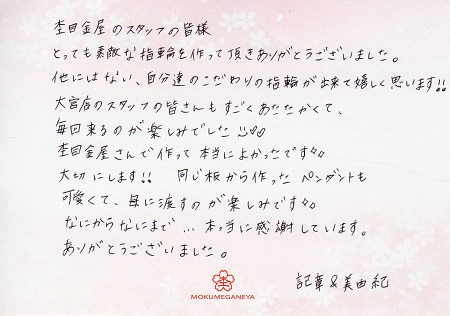 杢目金屋のスタッフの皆様
とっても素敵な指輪を作って頂きありがとうございました。
他にはない、自分達のこだわりの指輪が出来て嬉しく思います!!
大宮店のスタッフの皆さんもすごくあたたかくて、
毎回来るのが楽しみでした
杢目金屋さんで作って本当によかったです
大切にします!! 同じ板から作ったペンダントも
可愛くて、母に渡すのが楽しみです。
なにからなにまで…本当に感謝しています。
ありがとうございました。
記章&美由紀
杢
MOKUMEGANEYA